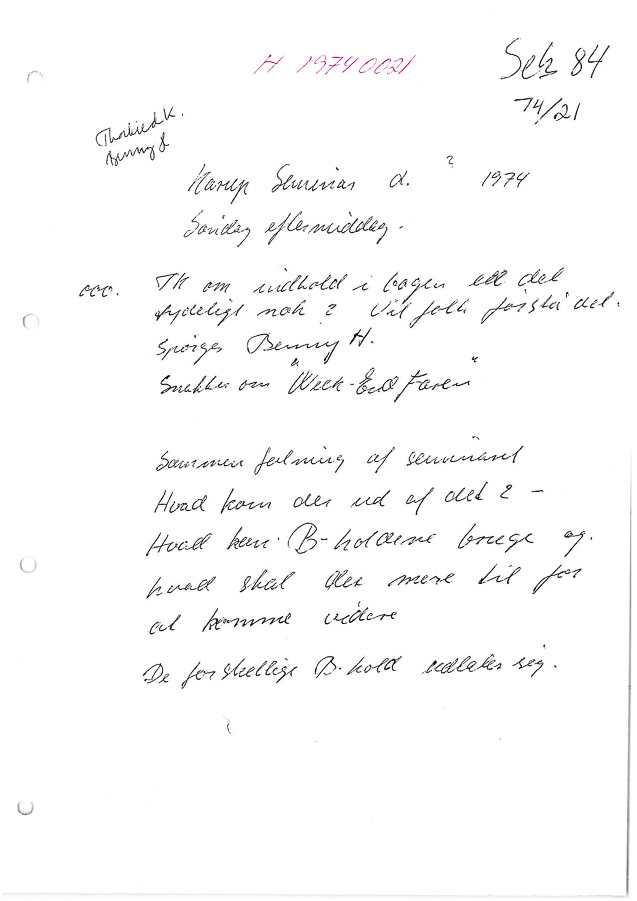 H 19740021
Seb 84
74/21
Thorkild K.
Benny
Karup Seminar d. ? 1974
Søndag eftermiddag.
ooo. TK om indhold i bogen er det
tydeligt nok? Vil folk forstå det.
Spørges Benny H.
Snakker om "Week-End Faren"
Sammenfatning af seminaret
Hvad kom der ud af det? -
Hvad kan B-holdene bruge og.
hvad skal der mere til for
at komme videre
De forskellige B-hold udtaler sig.